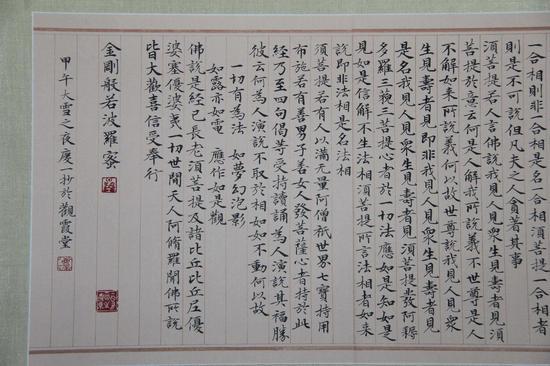 一合相則非一合相是名一合相須菩提一合相者
則是不可說但凡夫之人貪著其事
須菩提若人言佛說我見人見眾生見壽者見須
菩提於意云何是人解我所說義不世尊是人
不解如來所說義何以故世尊說我見人見眾
生見壽者見即非我見人見眾生見壽者見
是名我見人見眾生見壽者見須菩提發阿耨
多羅三藐三菩提心者於一切法應如是知如是
見如是信解不生法相須菩提所言法相者如來
說即非法相是名法相
須菩提若有人以滿無量阿僧祇世界七寶持用
布施若有善男子善女人發菩薩心者持於此
經乃至四句偈等受持讀誦為人演說其福勝
彼云何為人演說不取於相如如不動何以故
一切有為法 如夢幻泡影
如露亦如電 應作如是觀
佛說是經已長老須菩提及諸比丘比丘尼優
婆塞優婆夷一切世間天人阿脩羅聞佛所說
皆大歡喜信受奉行
金剛般若波羅蜜
甲午大雪之夜慶一抄於觀霞堂